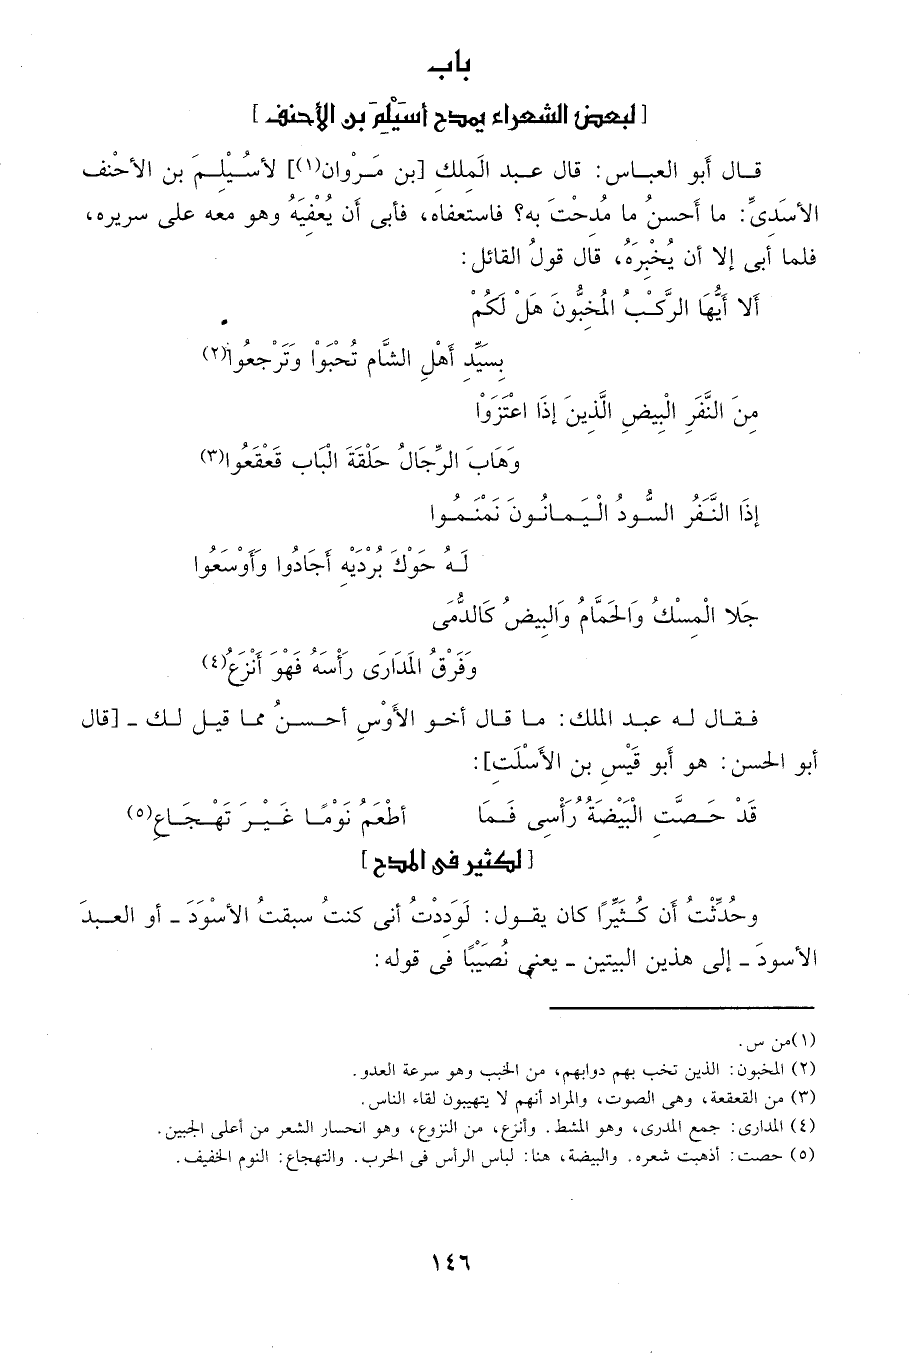 باب
[لبعض الشعراء يمدح أُسَيْلِمَ بن الأحنف]
قال أبو العباس: قال عبد المَلِك [بن مَرْوان(١)] لأسُيْلِمَ بن الأحْنف
الأسَدِىِّ: ما أَحسنُ ما مُدِحْتَ به؟ فاستعفاه، فأبى أن يُعْفِيَهُ وهو معه على سريره،
فلما أبى إلا أن يُخْبِرَهُ، قال قولُ القائل:
أَلا أَيُّهَا الرَّكْبُ المُخِبُّونَ هَلْ لَكُمْ
بِسَيِّدِ أَهْلِ الشَّامِ تُحْبَوْا وَتَرْجِعُوا(٢)
مِنَ النَّفَرِ الْبِيضِ الَّذِينَ إذَا اعْتَزَوْا
وَهَابَ الرِّجَالُ حَلْقَةَ الْبَابِ قَعْقَعُوا(٣)
إذَا النَّفَرُ السُّودُ الْيَمَانُونَ نَمْنَمُوا
لَهُ حَوْكَ بُرْدَيْهِ أَجَادُوا وَأَوْسَعُوا
جَلا الْمِسْكُ وَالحَمَّامُ وَالبِيضُ كَالدُّمَى
وَفَرْقُ المَدَارَى رَأْسَهُ فَهْوَ أَنْزَعُ(٤)
فقال له عبد الملك: ما قال أخو الأَوْسِ أحسنُ مما قيل لك - [قال
أبو الحسن: هو أبو قَيْسِ بن الأَسْلَتِ]:
قَدْ حَصَّتِ الْبَيْضَةُ رَأْسِى فَمَا أَطْعَمُ نَوْمًا غَيْرَ تَهْجَاعِ(٥)
[لكثير فى المدح]
وحُدِّثْتُ أن كُثَيِّرًا كان يقول: لَوَدِدْتُ أنى كنتُ سبقتُ الأسْوَدَ - أو العبدَ
الأسودَ - إلى هذين البيتين - يعنى نُصَيْبًا فى قوله:
(١)من س.
(٢) المخبون: الذين تخب بهم دوابهم، من الخبب وهو سرعة العدو.
(٣) من القعقعة، وهى الصوت، والمراد أنهم لا يتهيبون لقاء الناس.
(٤) المدارى: جمع المدرى، وهو المشط. وأنزع، من النزوع، وهو انحسار الشعر من أعلى الجبين.
(٥) حصت: أذهبت شعره. والبيضة، هنا: لباس الرأس فى الحرب. والتهجاع: النوم الخفيف.
١٤٦